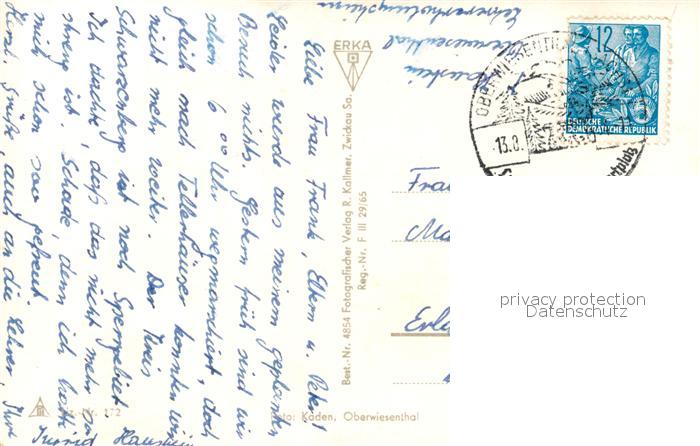 Liebe Frau Frank, Elken u. Peter!
Leider wurde aus meinem geplanten
Besuch nichts. Gestern früh sind wir
schon 6⁰⁰ Uhr wegmarschiert, doch
gleich nach Tellerhäuser konnten wir
nicht mehr weiter. Der Kreis
Schwarzenberg ist noch Sperrgebiet.
Ich dachte, daß das nicht mehr so
streng ist. Schade, denn ich hatte
mich schon so gefreut.
Herzl. Grüße, auch an die Lehrer, Ihre
Ingrid Haustein
Haustein
Oberwiesenthal
Lehrererholungsheim
ERKA
Best.-Nr. 4854 Fotografischer Verlag R. Kallmer, Zwickau Sa.
Reg.-Nr. F III 29/65
Nr. 172
Foto: Kaden, Oberwiesenthal
OBERWIESENTHAL
13.8.
12
DEUTSCHE
DEMOKRATISCHE REPUBLIK
Frau
Erl
privacy protection
Datenschutz